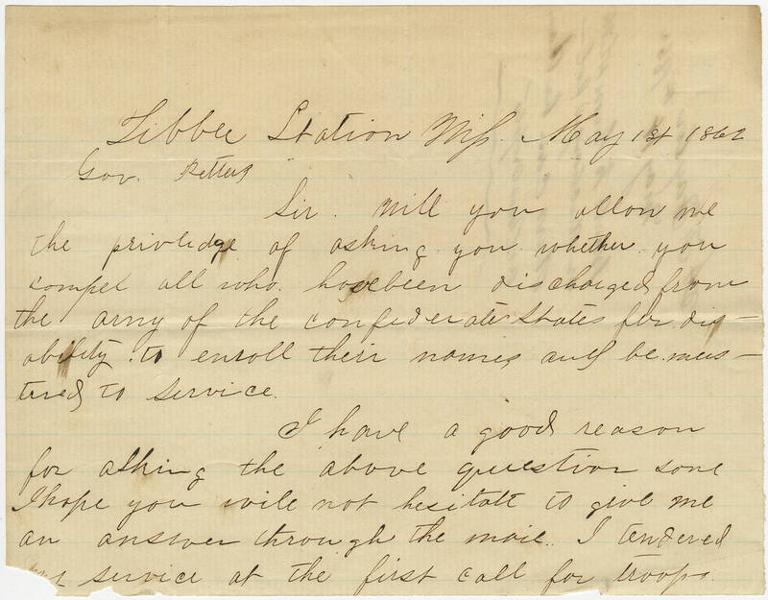 Tibbee Station Miss. May 1st 1862
Gov. Pettus
Sir. Will you allow me
the priviledge of asking you whether you
compel all who have been discharged from
the army of the confederate States for dis-
ability to enroll their names and be mus-
tered to service.
I have a good reason
for asking the above question sone
I hope you will not hesitate to give me
an answer through the mail. I tendered
my service at the first call for troops